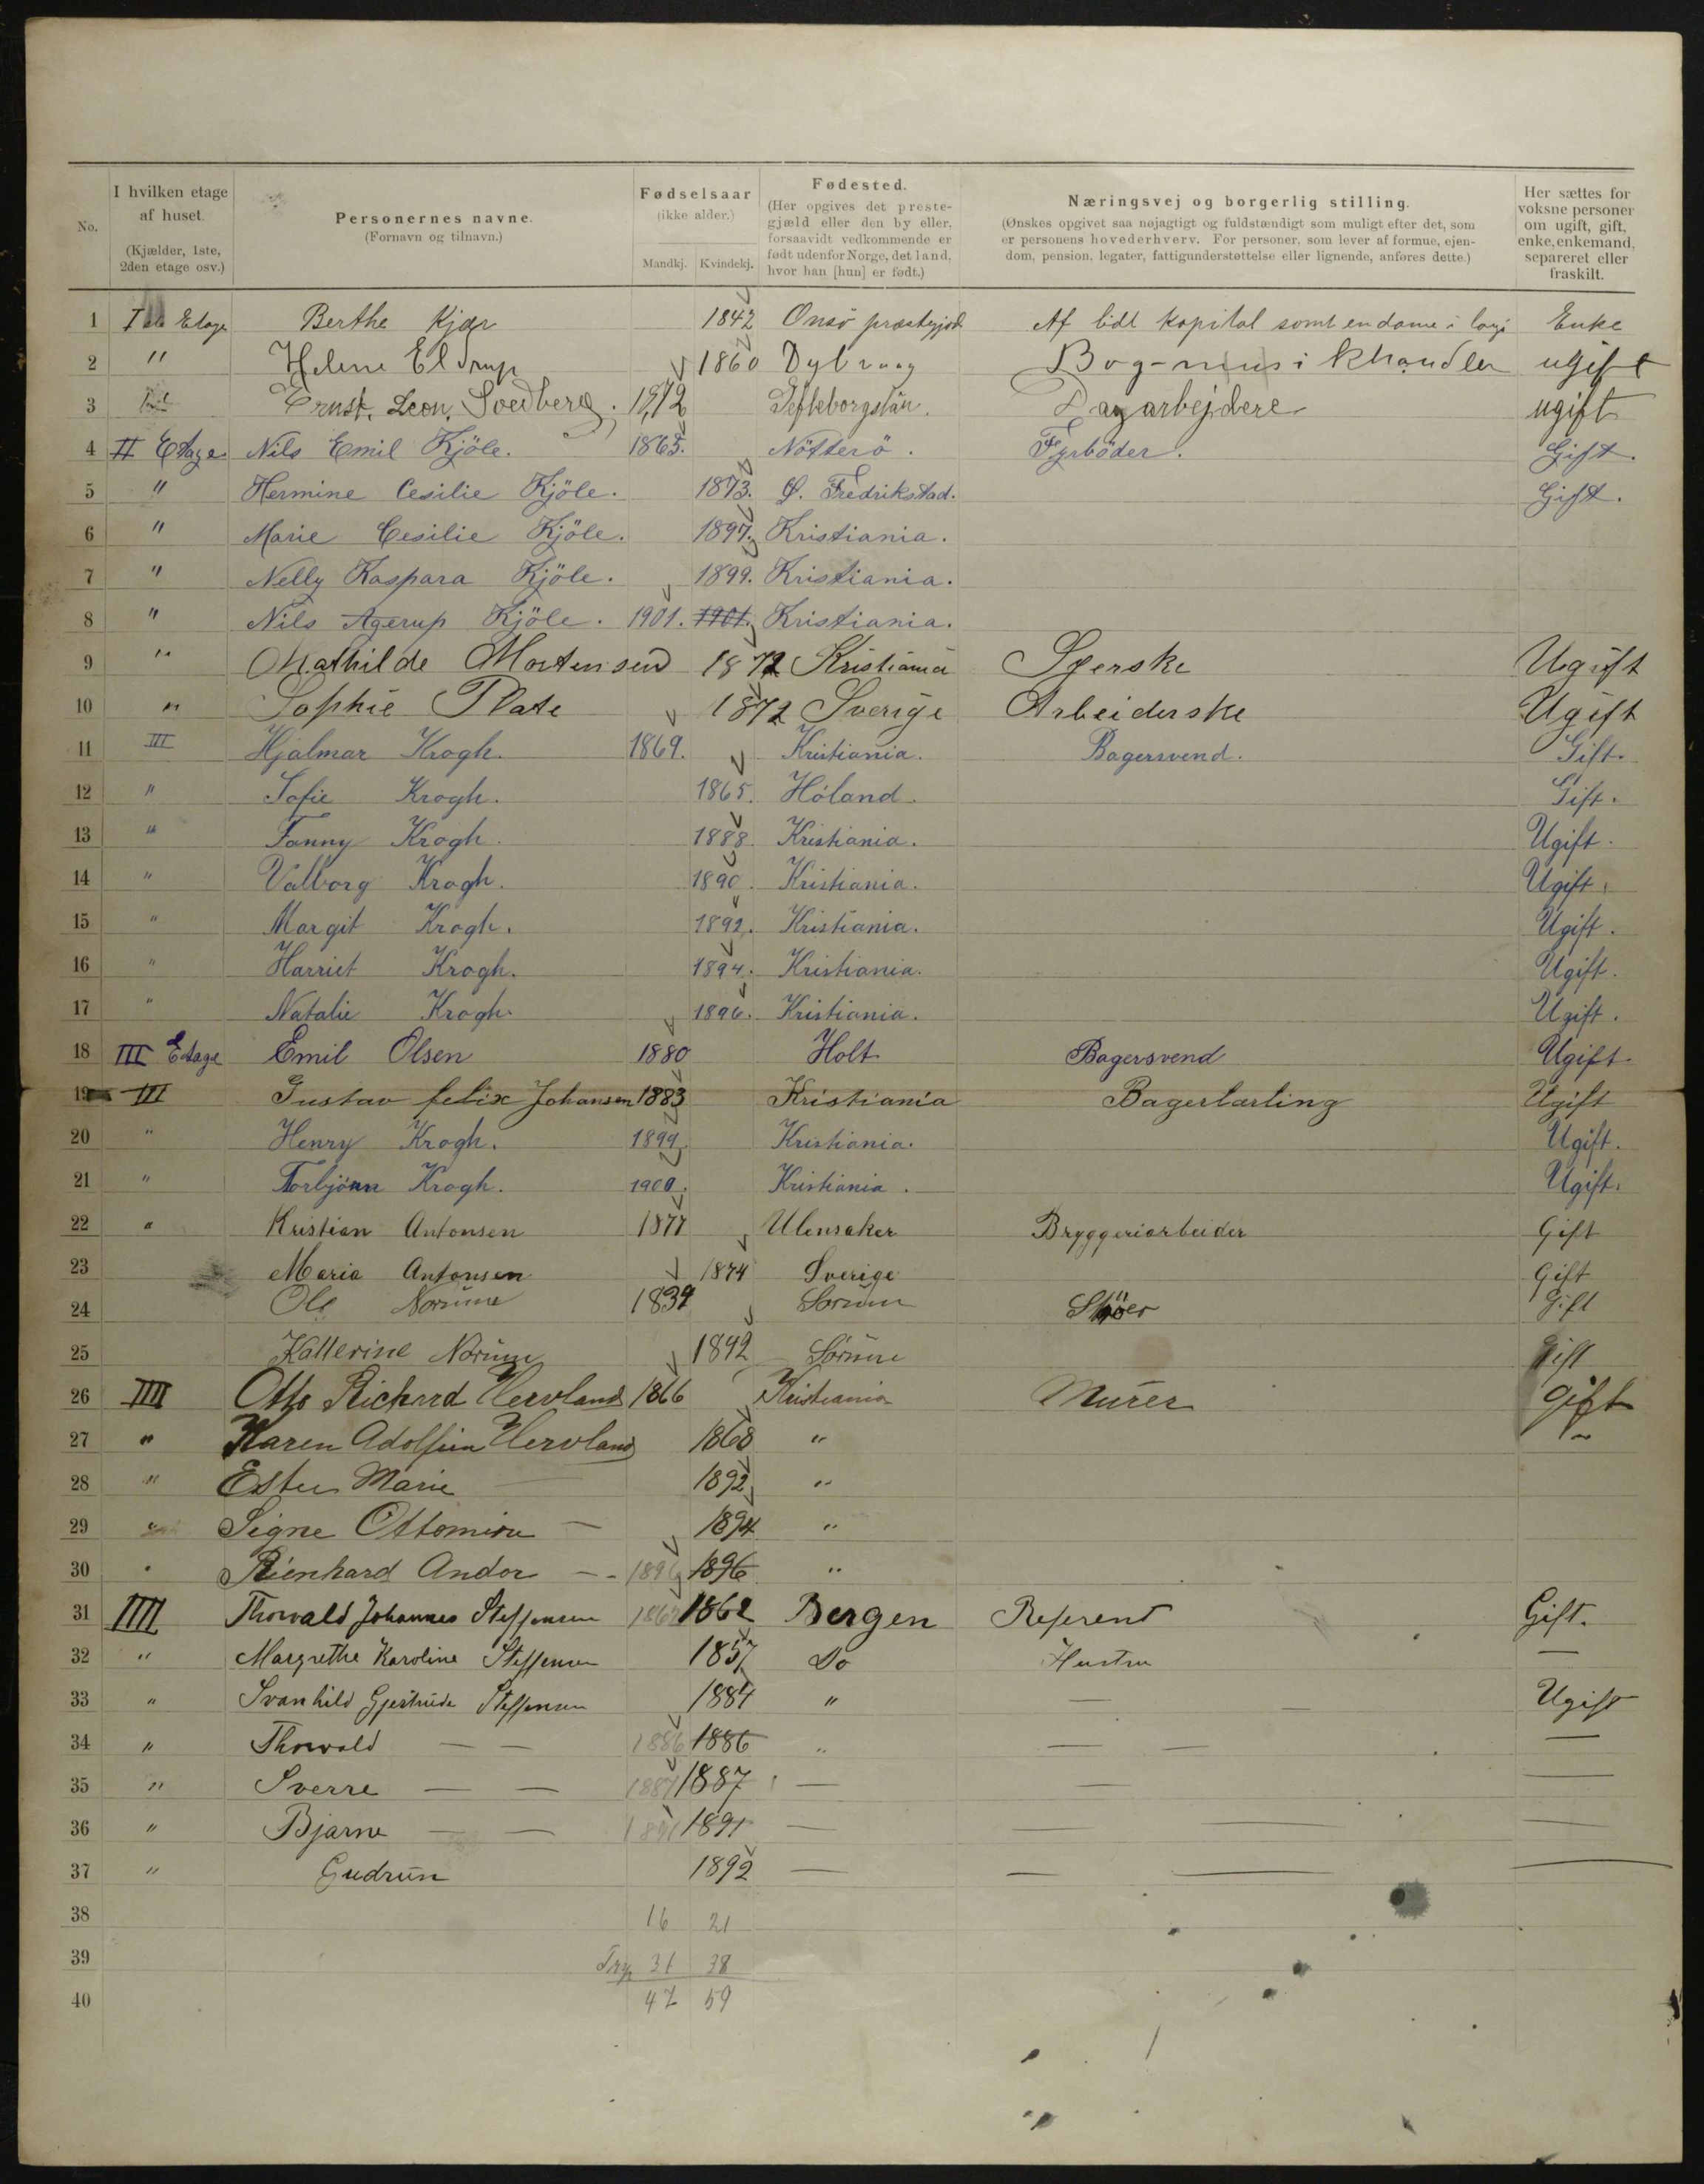 No.
I hvilken etage af huset. (Kjælder, 1ste, 2den etage osv.)
Personernes navne. (Fornavn og tilnavn.)
Fødselsaar (ikke alder.) Mandkj. Kvindekj.
Fødested. (Her opgives det prestegjæld eller den by eller, forsaavidt vedkommende er født udenfor Norge, det land, hvor han [hun] er født.)
Næringsvej og borgerlig stilling. (Ønskes opgivet saa nøjagtigt og fuldstændigt som muligt efter det, som er personens hovederhverv. For personer, som lever af formue, ejendom, pension, legater, fattigunderstøttelse eller lignende, anføres dette.)
Her sættes for voksne personer om ugift, gift, enke, enkemand, separeret eller fraskilt.
1 Etage Berthe Kjær 1842 Onsö Af lidt kapital samt en dame i Enke
2 " Helene Eldrup 1860 Dybvaag Bog-musikhandler ugift
3 Ernst. Leon. Svedberg. 1872 Gefleborgslän. Dagarbejdere ugift
4 II Etage Nils Emil Kjöle. 1865. Nötterö. Fyrböder. Gift.
5 " Hermine Cesilie Kjöle. 1873. Ø. Fredrikstad. Gift.
6 " Marie Cesilie Kjöle. 1897. Kristiania.
7 " Nelly Kaspara Kjöle. 1899. Kristiania.
8 " Nils Agerup Kjöle. 1901. 1901. Kristiania.
9 " Mathilde Mortensen 1872 Kristiania Syerske Ugift
10 " Sophie Plate 1872 Sverige Arbeiderske Ugift
11 III Hjalmar Krogh. 1869. Kristiania. Bagersvend. Gift.
12 " Sofie Krogh. 1865. Höland. Gift.
13 " Fanny Krogh. 1888. Kristiania. Ugift.
14 " Valborg Krogh. 1890. Kristiania. Ugift.
15 " Margit Krogh. 1892. Kristiania. Ugift.
16 " Harriet Krogh. 1894. Kristiania. Ugift.
17 " Natalie Krogh. 1896. Kristiania. Ugift.
18 III Etage Emil Olsen 1880 Holt Bagersvend Ugift
19 III Gustav felix Johansen 1883 Kristiania Bagerlærling Ugift
20 " Henry Krogh. 1899. Kristiania. Ugift.
21 " Torbjörn Krogh. 1900. Kristiania. Ugift.
22 " Kristian Antonsen 1877 Ulensaker Bryggeriarbeider Gift
23 Maria Antonsen 1874 Sverige Gift
24 Ole Norum 1839 Sörum Gift
25 Katterine Norum 1842 Sörum Gift
26 IIII Otto Richard Hervland 1866 Kristiania Murer Gift
27 " Karen Adolfin Hervland 1868 " "
28 " Ester Marie — 1892 "
29 " Signe Ottomine — 1894 "
30 " Rienhard Andor — 1896 1896 "
31 IIII Thorvald Johannes Steffensen 1862 1862 Bergen Referent Gift.
32 " Margrethe Karoline Steffensen 1857 Do Hustru —
33 " Svanhild Gjertrude Steffensen 1884 " — — Ugift
34 " Thorvald — — 1886 1886 " — — —
35 " Sverre — — 1887 1887 — — —
36 " Bjarne — — 1891 1891 — — — —
37 " Gudrun 1892 — — — —
38 16 21
39 31 38
40 47 59